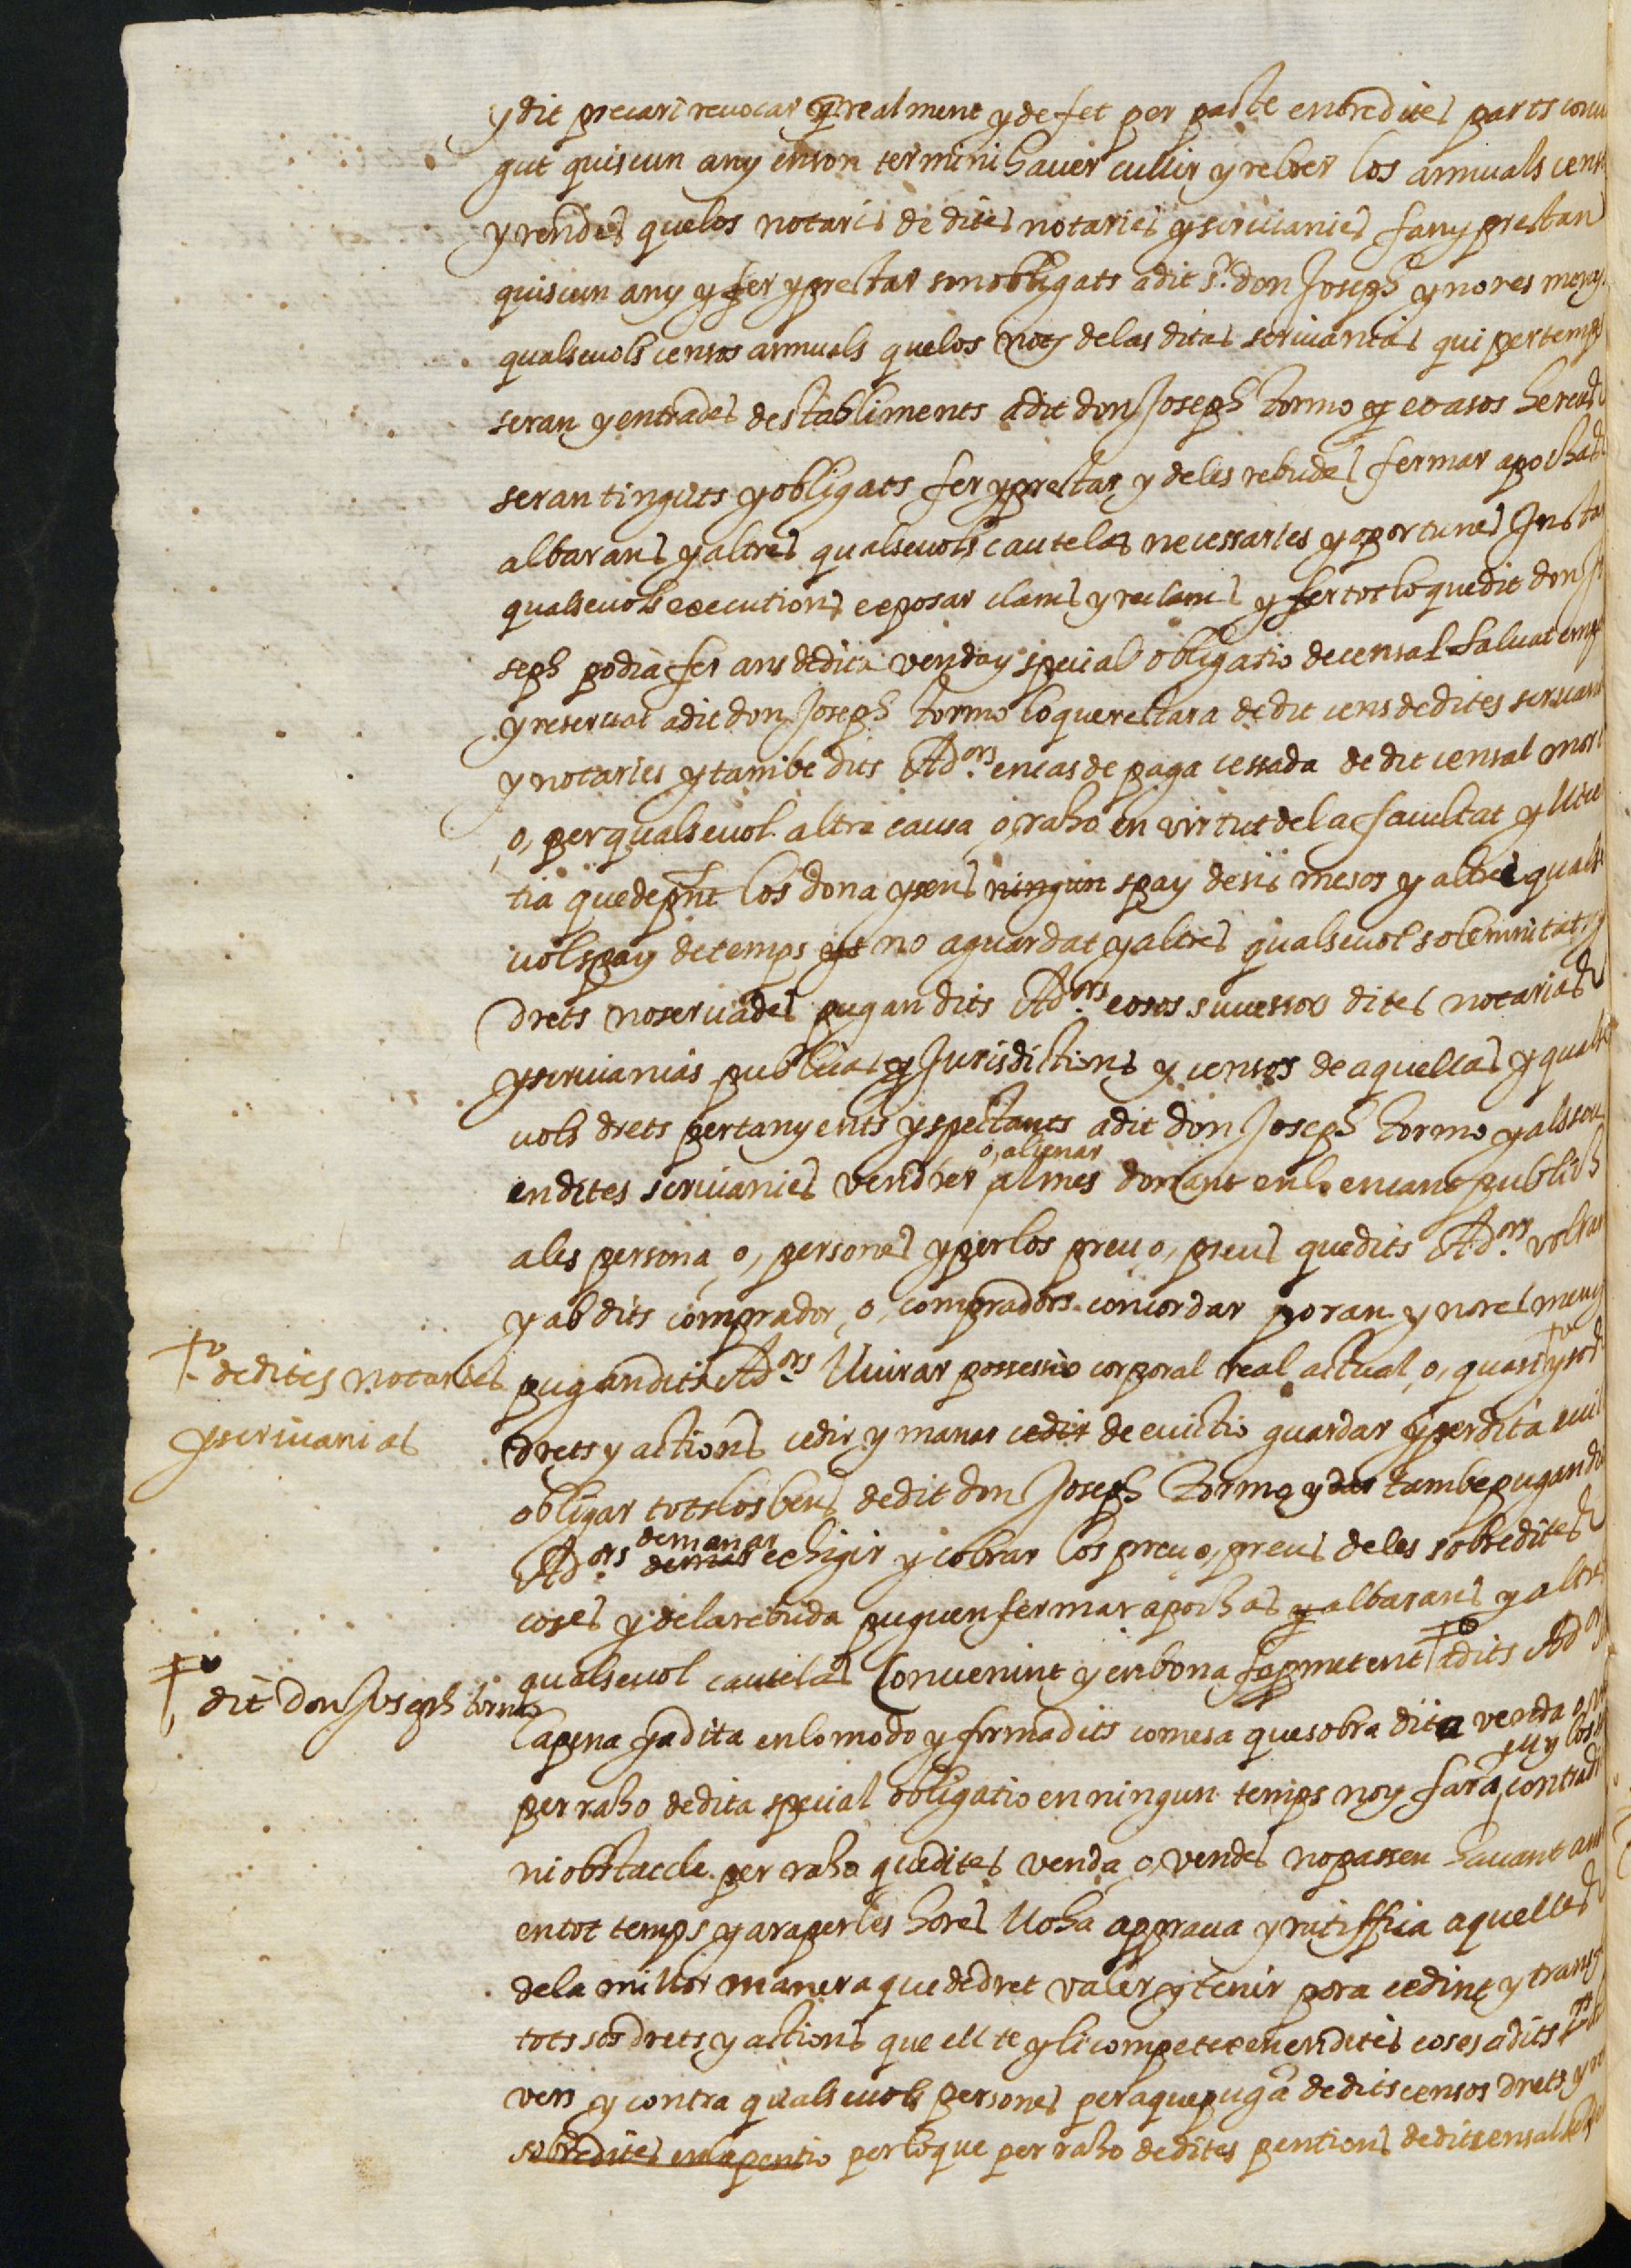 y dit precari revocar y realment y de fet per pacte entre dites parts convin
gut quiscun any en son termini haver cullir y rebrer los annuals cens
y rendes que los notaris de dites notaries y scrivanies fan y prestan
quiscun any y fer y prestar son obligats a dit Sr. don Joseph y no res meny
qualsevols censos annuals que los nots de las ditas scrivanias qui per temps
seran y entrades de stabliments a dit don Joseph Tormo y e o a sos hereus
seran tinguts y obligats fer y prestar y de les rebudes fermar apochas
albarans y altres qualsevols cautelas necessaries y oportunes Insta
qualsevols executions exposar clams y reclams y fer tot lo que dit don Jo
seph podia fer ans de dita venda y special obligatio de censal salvat emp
y reservat a dit don Joseph Tormo lo que restara de dit cens de dites scrivani
y notaries y tambe dits Adors. en cas de paga cessada de dit censal mort
o, per qualsevol altra causa o, raho en virtut de la facultat y llicen
tia que de pnt los dona y sens ningun spay de sis mesos y altres qualse
vol spay de temps y no aguardat y altres qualsevol solemnitats y
drets no servades pugan dits Adors. e o sos successors dites notarias
y scrivanias publicas y Jurisdictions y censos de aquellas y qualse
vols drets pertanyents y spectants a dit don Joseph Tormo y als seus
en dites scrivanies vendrer o, alienar al mes donant en lo encant publich
a les persona o, persones y per los preu o, preus que dits Adors. volran
y ab dits comprador, o, compradors concordar poran y no res meny
to de dites notaries
y scrivanias
pugan dits Adors. lliurar possessio corporal real actual, o, quasi to y sos
drets y actions cedir y manar cedir de evictio guardar y per dita evic
obligar tots los bens de dit don Joseph Tormo y dar tambe pugan di
Adors. demanar exhigir y cobrar los preu o, preus de les sobredites
coses y de la rebuda puguen fermar apochas y albarans y altres
qualsevol cautelas Convenint y en bona fe prometent to a dits Adors
to dit Don Joseph tormo
la pena ja dita en lo modo y forma dits comesa que sobra dita venda o,
per raho de dita special obligatio en ningun temps noy fara, ell y los contradi
ni obstacle per raho que dites venda o, vendes no passen havant ans
en tot temps y ara per les hores lloha apprava y ratiffica aquelles
de la millor manera que de dret valer y tenir pora cedint y transp
tots sos drets y actions que ell te y li competexen en dites coses a dits
vers y contra qualsevols persones pera que puga de dits censos drets y
sobredites en la pentio per lo que per raho de dites pentions de dit censal